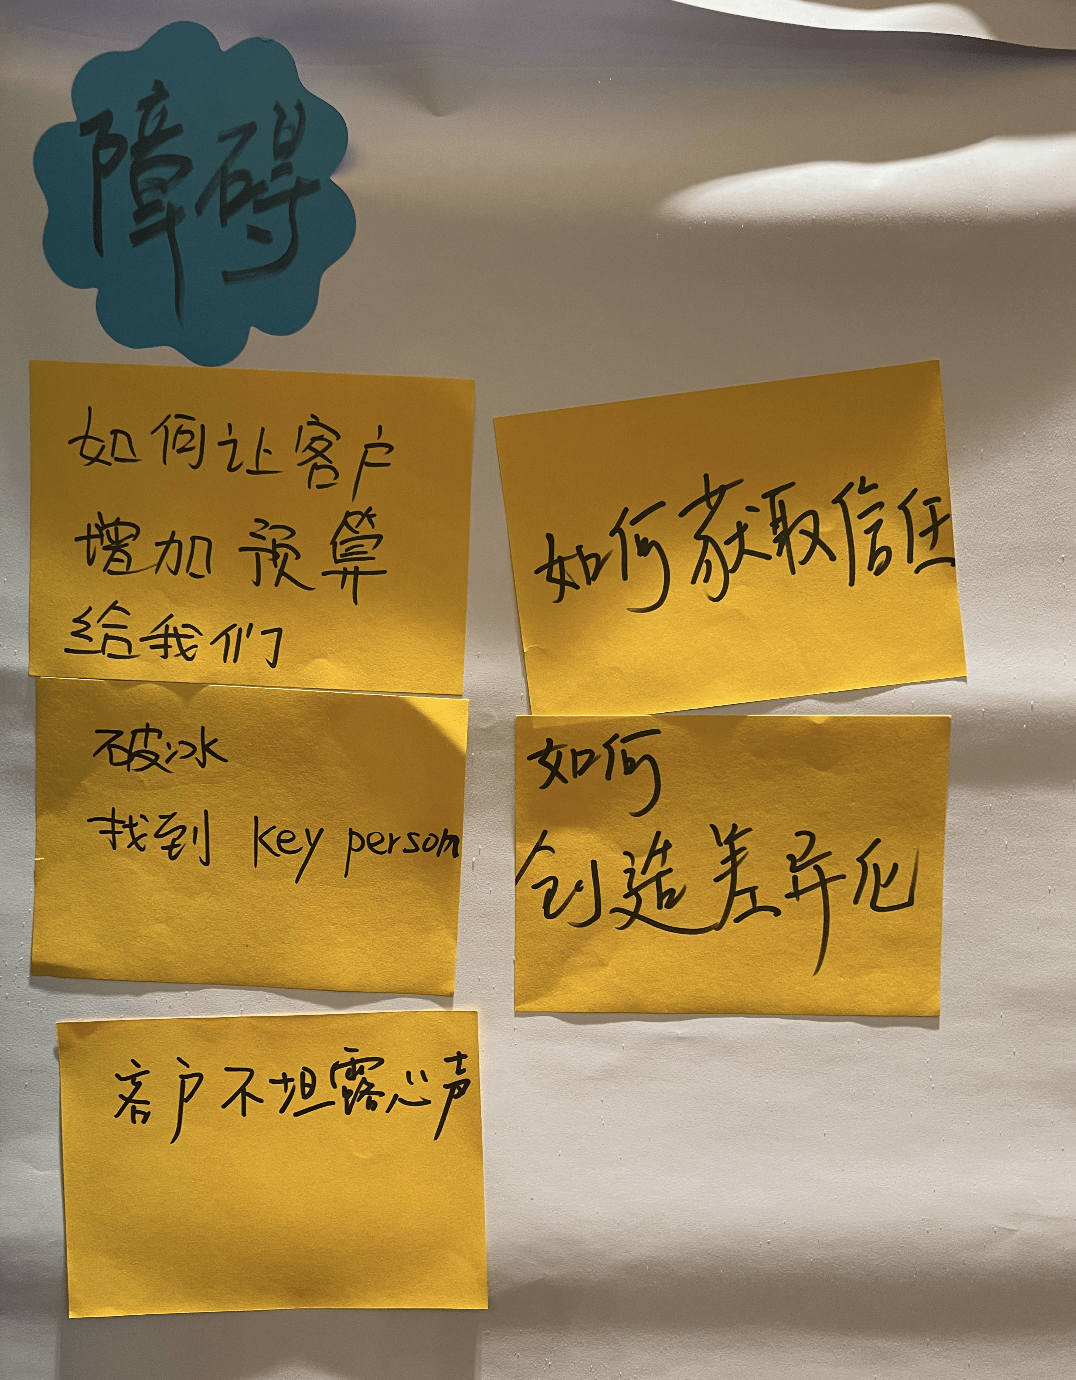 障碍
如何让客户
增加预算
给我们
如何获取信任
破冰
找到 key person
如何
创造差异化
客户不坦露心声